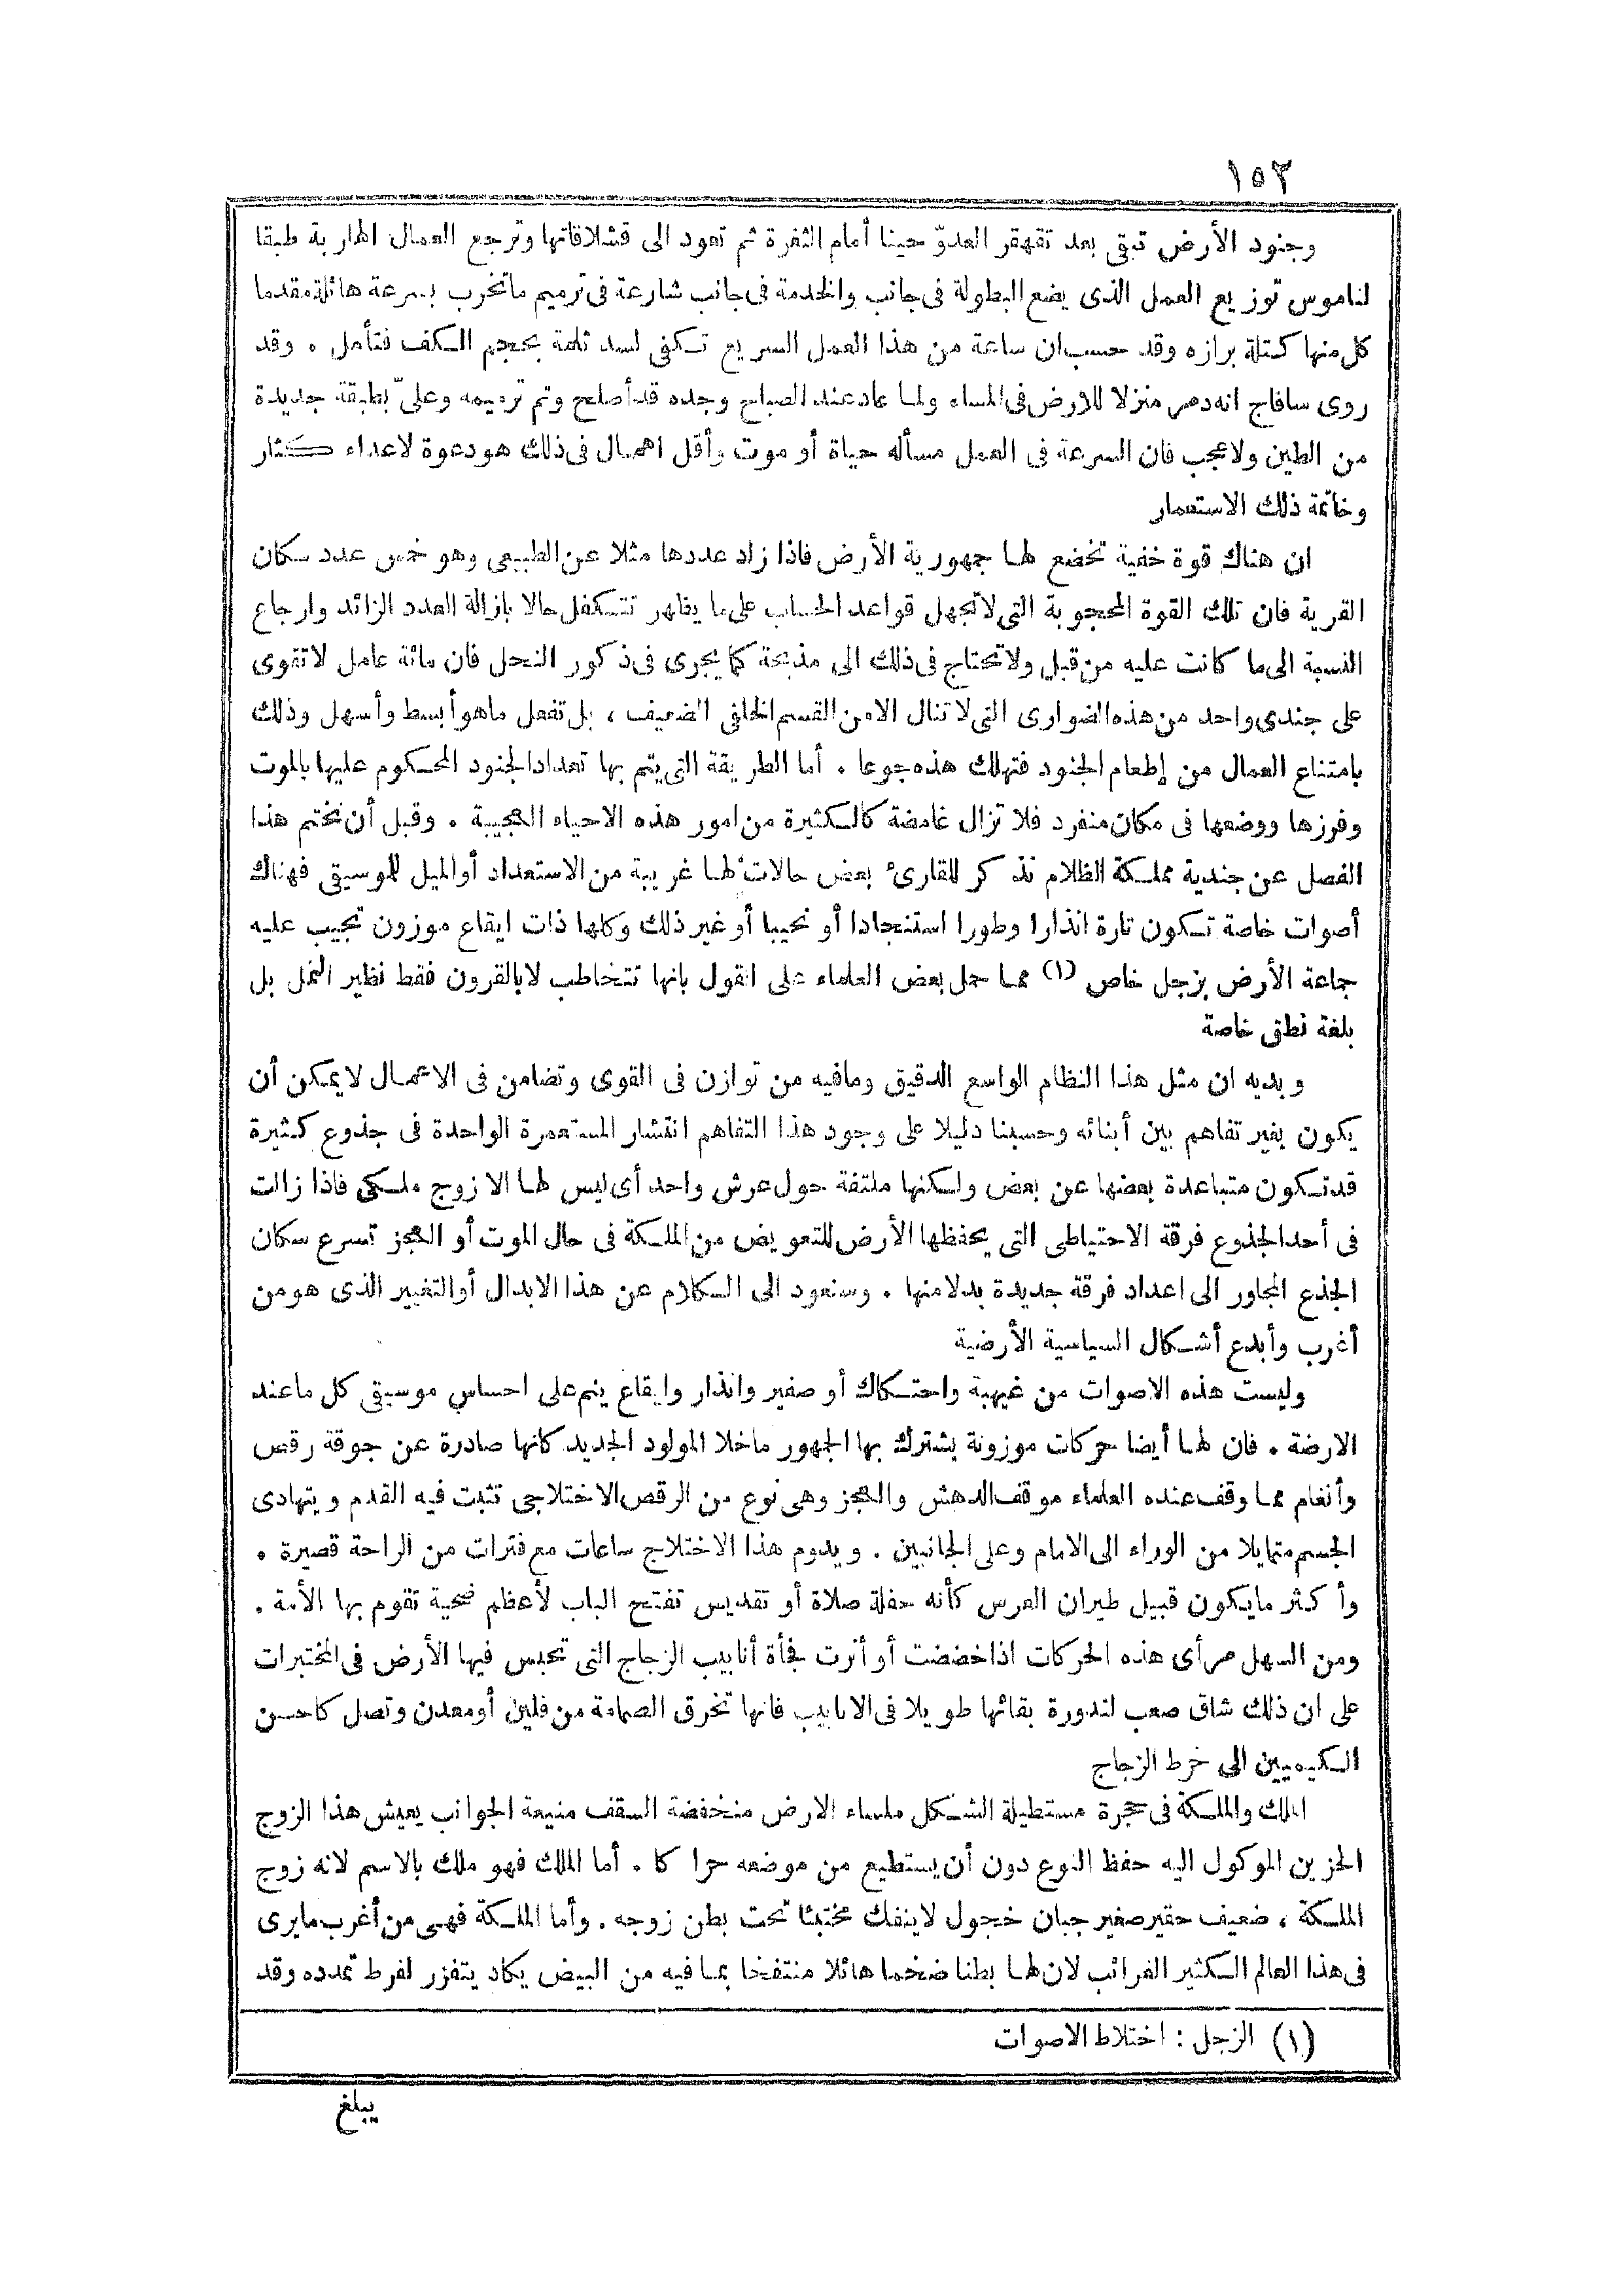 ١٥٣
وجنود الأرض تبقى بعد تقهقر العدوّ حينا أمام الثغرة ثم تعود الى قشلاقاتها وترجع العمال الهاربة طبقا
لناموس توزيع العمل الذى يضع البطولة فى جانب والخدمة فى جانب شارعة فى ترميم ماتخرب بسرعة هائلة مقدما
كل منها كتلة برازه وقد حسب ان ساعة من هذا العمل السريع تكفى لسد ثلمة بحجم الكف فتأمل . وقد
روى سافاج انه دمر منزلا للارض فى المساء ولما عاد عند الصباح وجده قد أصلح وتم ترميمه وعلىّ بطبقة جديدة
من الطين ولا عجب فان السرعة فى العمل مسأله حياة أو موت وأقل اهمال فى ذلك هو دعوة لاعداء كثار
وخاتمة ذلك الاستعمار
ان هناك قوة خفية تخضع لها جمهورية الأرض فاذا زاد عددها مثلا عن الطبيعى وهو خمس عدد سكان
القرية فان تلك القوة المحجوبة التى لا تجهل قواعد الحساب على ما يظهر تتكفل حالا بازالة العدد الزائد وارجاع
النسبة الى ما كانت عليه من قبل ولا تحتاج فى ذلك الى مذبحة كما يجرى فى ذكور النحل فان مائة عامل لا تقوى
على جندى واحد من هذه الضوارى التى لا تنال الا من القسم الخلفى الضعيف ، بل تفعل ماهو أبسط وأسهل وذلك
بامتناع العمال من إطعام الجنود فتهلك هذه جوعا . أما الطريقة التى يتم بها تعداد الجنود المحكوم عليها بالموت
وفرزها ووضعها فى مكان منفرد فلا تزال غامضة كالكثيرة من امور هذه الاحياء العجيبة . وقبل أن نختم هذا
الفصل عن جندية مملكة الظلام نذكر للقارئ بعض حالات لها غريبة من الاستعداد أو الميل للموسيقى فهناك
أصوات خاصة تكون تارة انذارا وطورا استنجادا أو نحيبا أو غير ذلك وكلها ذات ايقاع موزون تجيب عليه
جماعة الأرض بزجل خاص (١) مما حمل بعض العلماء على القول بانها تتخاطب لا بالقرون فقط نظير النمل بل
بلغة نطق خاصة
وبديه ان مثل هذا النظام الواسع الدقيق ومافيه من توازن فى القوى وتضامن فى الاعمال لا يمكن أن
يكون بغير تفاهم بين أبنائه وحسبنا دليلا على وجود هذا التفاهم انتشار المستعمرة الواحدة فى جذوع كثيرة
قد تكون متباعدة بعضها عن بعض ولكنها ملتفة حول عرش واحد أى ليس لها الا زوج ملكى فاذا زالت
فى أحد الجذوع فرقة الاحتياطى التى يحفظها الأرض للتعويض من الملكة فى حال الموت أو العجز تسرع سكان
الجذع المجاور الى اعداد فرقة جديدة بدلا منها . وسنعود الى الكلام عن هذا الابدال أو التغيير الذى هو من
أغرب وأبدع أشكال السياسية الأرضية
وليست هذه الاصوات من غيهبة واحتكاك أو صفير وانذار وايقاع ينم على احساس موسيقى كل ماعند
الارضة . فان لها أيضا حركات موزونة يشترك بها الجمهور ماخلا المولود الجديد كانها صادرة عن جوقة رقص
وأنغام مما وقف عنده العلماء موقف الدهش والعجز وهى نوع من الرقص الاختلاجى تثبت فيه القدم ويتهادى
الجسم متمايلا من الوراء الى الامام وعلى الجانبين . ويدوم هذا الاختلاج ساعات مع فترات من الراحة قصيرة .
وأكثر مايكون قبيل طيران العرس كأنه حفلة صلاة أو تقديس تفتح الباب لأعظم ضحية تقوم بها الأمة .
ومن السهل مرأى هذه الحركات اذا خضضت أو أنرت فجأة أنابيب الزجاج التى تحبس فيها الأرض فى المختبرات
على ان ذلك شاق صعب لندورة بقائها طويلا فى الانابيب فانها تخرق الصمامة من فلين أو معدن وتصل كاحسن
الكيميين الى خرط الزجاج
الملك والملكة فى حجرة مستطيلة الشكل ملساء الارض منخفضة السقف منيعة الجوانب يعيش هذا الزوج
الحزين الموكول اليه حفظ النوع دون أن يستطيع من موضعه حراكا . أما الملك فهو ملك بالاسم لانه زوج
الملكة ، ضعيف حقير صغير جبان خجول لا ينفك مختبئا تحت بطن زوجه . وأما الملكة فهى من أغرب مايرى
فى هذا العالم الكثير الغرائب لان لها بطنا ضخما هائلا منتفخا بما فيه من البيض يكاد يتفزر لفرط تمدده وقد
(١) الزجل : اختلاط الاصوات
يبلغ